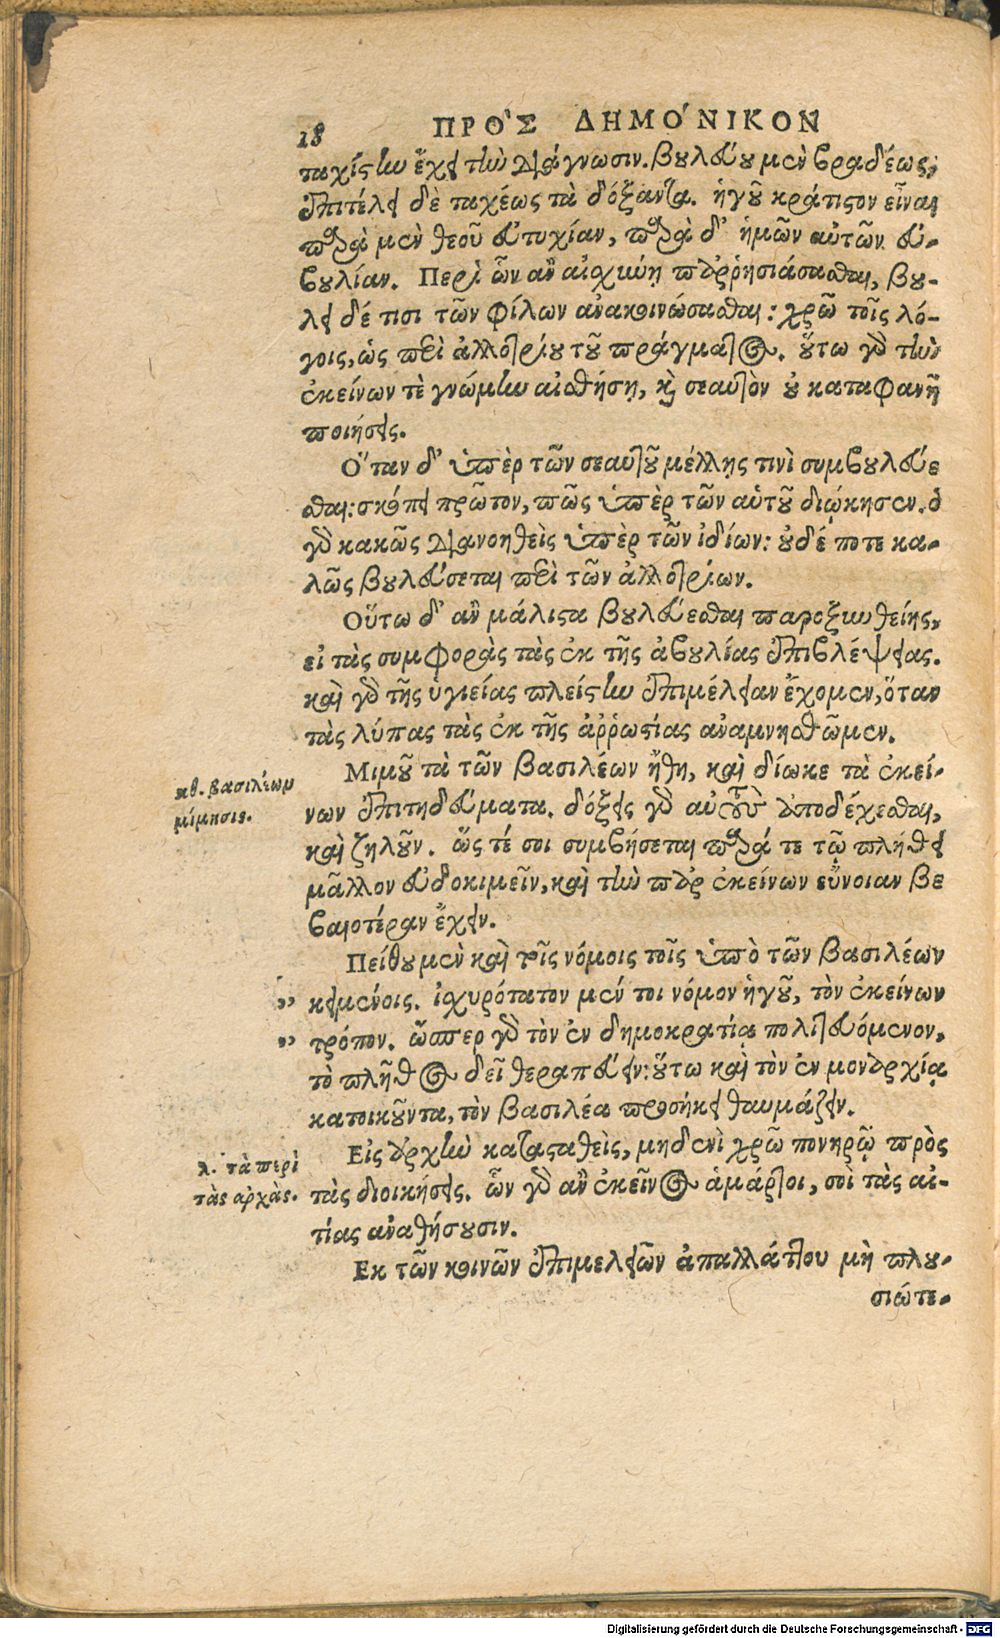 18 ΠΡΟ῾Σ ΔΗΜΟ´ΝΙΚΟΝ
ταχίστην ἔχει τὴν διάγνωσιν. βουλεύου μὲν βραδέως,
ἐπιτέλει δὲ ταχέως τὰ δόξαντα. ἡγοῦ κράτιστον εἶναι
παρὰ μὲν θεοῦ εὐτυχίαν, παρὰ δ᾽ ἡμῶν αὐτῶν εὐ-
βουλίαν. Περὶ ὧν ἂν αἰσχύνῃ παρρησιάσασθαι, βού-
λει δέ τισι τῶν φίλων ἀνακοινώσασθαι: χρῶ τοῖς λό-
γοις, ὡς περὶ ἀλλοτρίου τοῦ πράγματος. οὕτω γὰρ τὴν
ἐκείνων τὲ γνώμην αἰσθήσῃ, καὶ σεαυτὸν οὐ καταφανῆ
ποιήσεις.
Ὅταν δ᾽ ὑπὲρ τῶν σεαυτοῦ μέλλῃς τινὶ συμβουλεύε
σθαι: σκόπει πρῶτον, πῶς ὑπὲρ τῶν αὑτοῦ διῴκησεν. ὁ
γὰρ κακῶς διανοηθεὶς ὑπὲρ τῶν ἰδίων: οὐδέ ποτε κα-
λῶς βουλεύσεται περὶ τῶν ἀλλοτρίων.
Οὕτω δ᾽ ἂν μάλιστα βουλεύεσθαι παροξυνθείης,
εἰ τὰς συμφορὰς τὰς ἐκ τῆς ἀβουλίας ἐπιβλέψειας.
καὶ γὰρ τῆς ὑγιείας πλείστην ἐπιμέλειαν ἔχομεν, ὅταν
τὰς λύπας τὰς ἐκ τῆς ἀῤῥωστίας ἀναμνησθῶμεν.
κθ. βασιλέων
μίμησις.
Μιμοῦ τὰ τῶν βασιλέων ἤθη, καὶ δίωκε τὰ ἐκεί-
νων ἐπιτηδεύματα. δόξεις γὰρ αὐτοὺς ἀποδέχεσθαι,
καὶ ζηλοῦν. ὥς τέ σοι συμβήσεται παρά τε τῷ πλήθει
μᾶλλον εὐδοκιμεῖν, καὶ τὴν παρ ἐκείνων εὔνοιαν βε
βαιοτέραν ἔχειν.
Πείθου μὲν καὶ τοῖς νόμοις τοῖς ὑπὸ τῶν βασιλέων
„ κειμένοις. ἰσχυρότατον μέν τοι νόμον ἡγοῦ, τὸν ἐκείνων
„ τρόπον. ὥσπερ γὰρ τὸν ἐν δημοκρατίᾳ πολιτευόμενον,
τὸ πλῆθος δεῖ θεραπεύειν: οὕτω καὶ τὸν ἐν μοναρχίᾳ
κατοικοῦντα, τὸν βασιλέα προσήκει θαυμάζειν.
λ. τὰ περὶ
τὰς ἀρχάς.
Εἰς ἀρχὴν κατασταθεὶς, μηδενὶ χρῶ πονηρῷ πρὸς
τὰς διοικήσεις. ὧν γὰρ ἂν ἐκεῖνος ἁμάρτοι, σοὶ τὰς αἰ-
τίας ἀναθήσουσιν.
Εκ τῶν κοινῶν ἐπιμελειῶν ἀπαλλάττου μὴ πλου-
σιώτε-
Digitalisierung gefördert durch die Deutsche Forschungsgemeinschaft - DFG